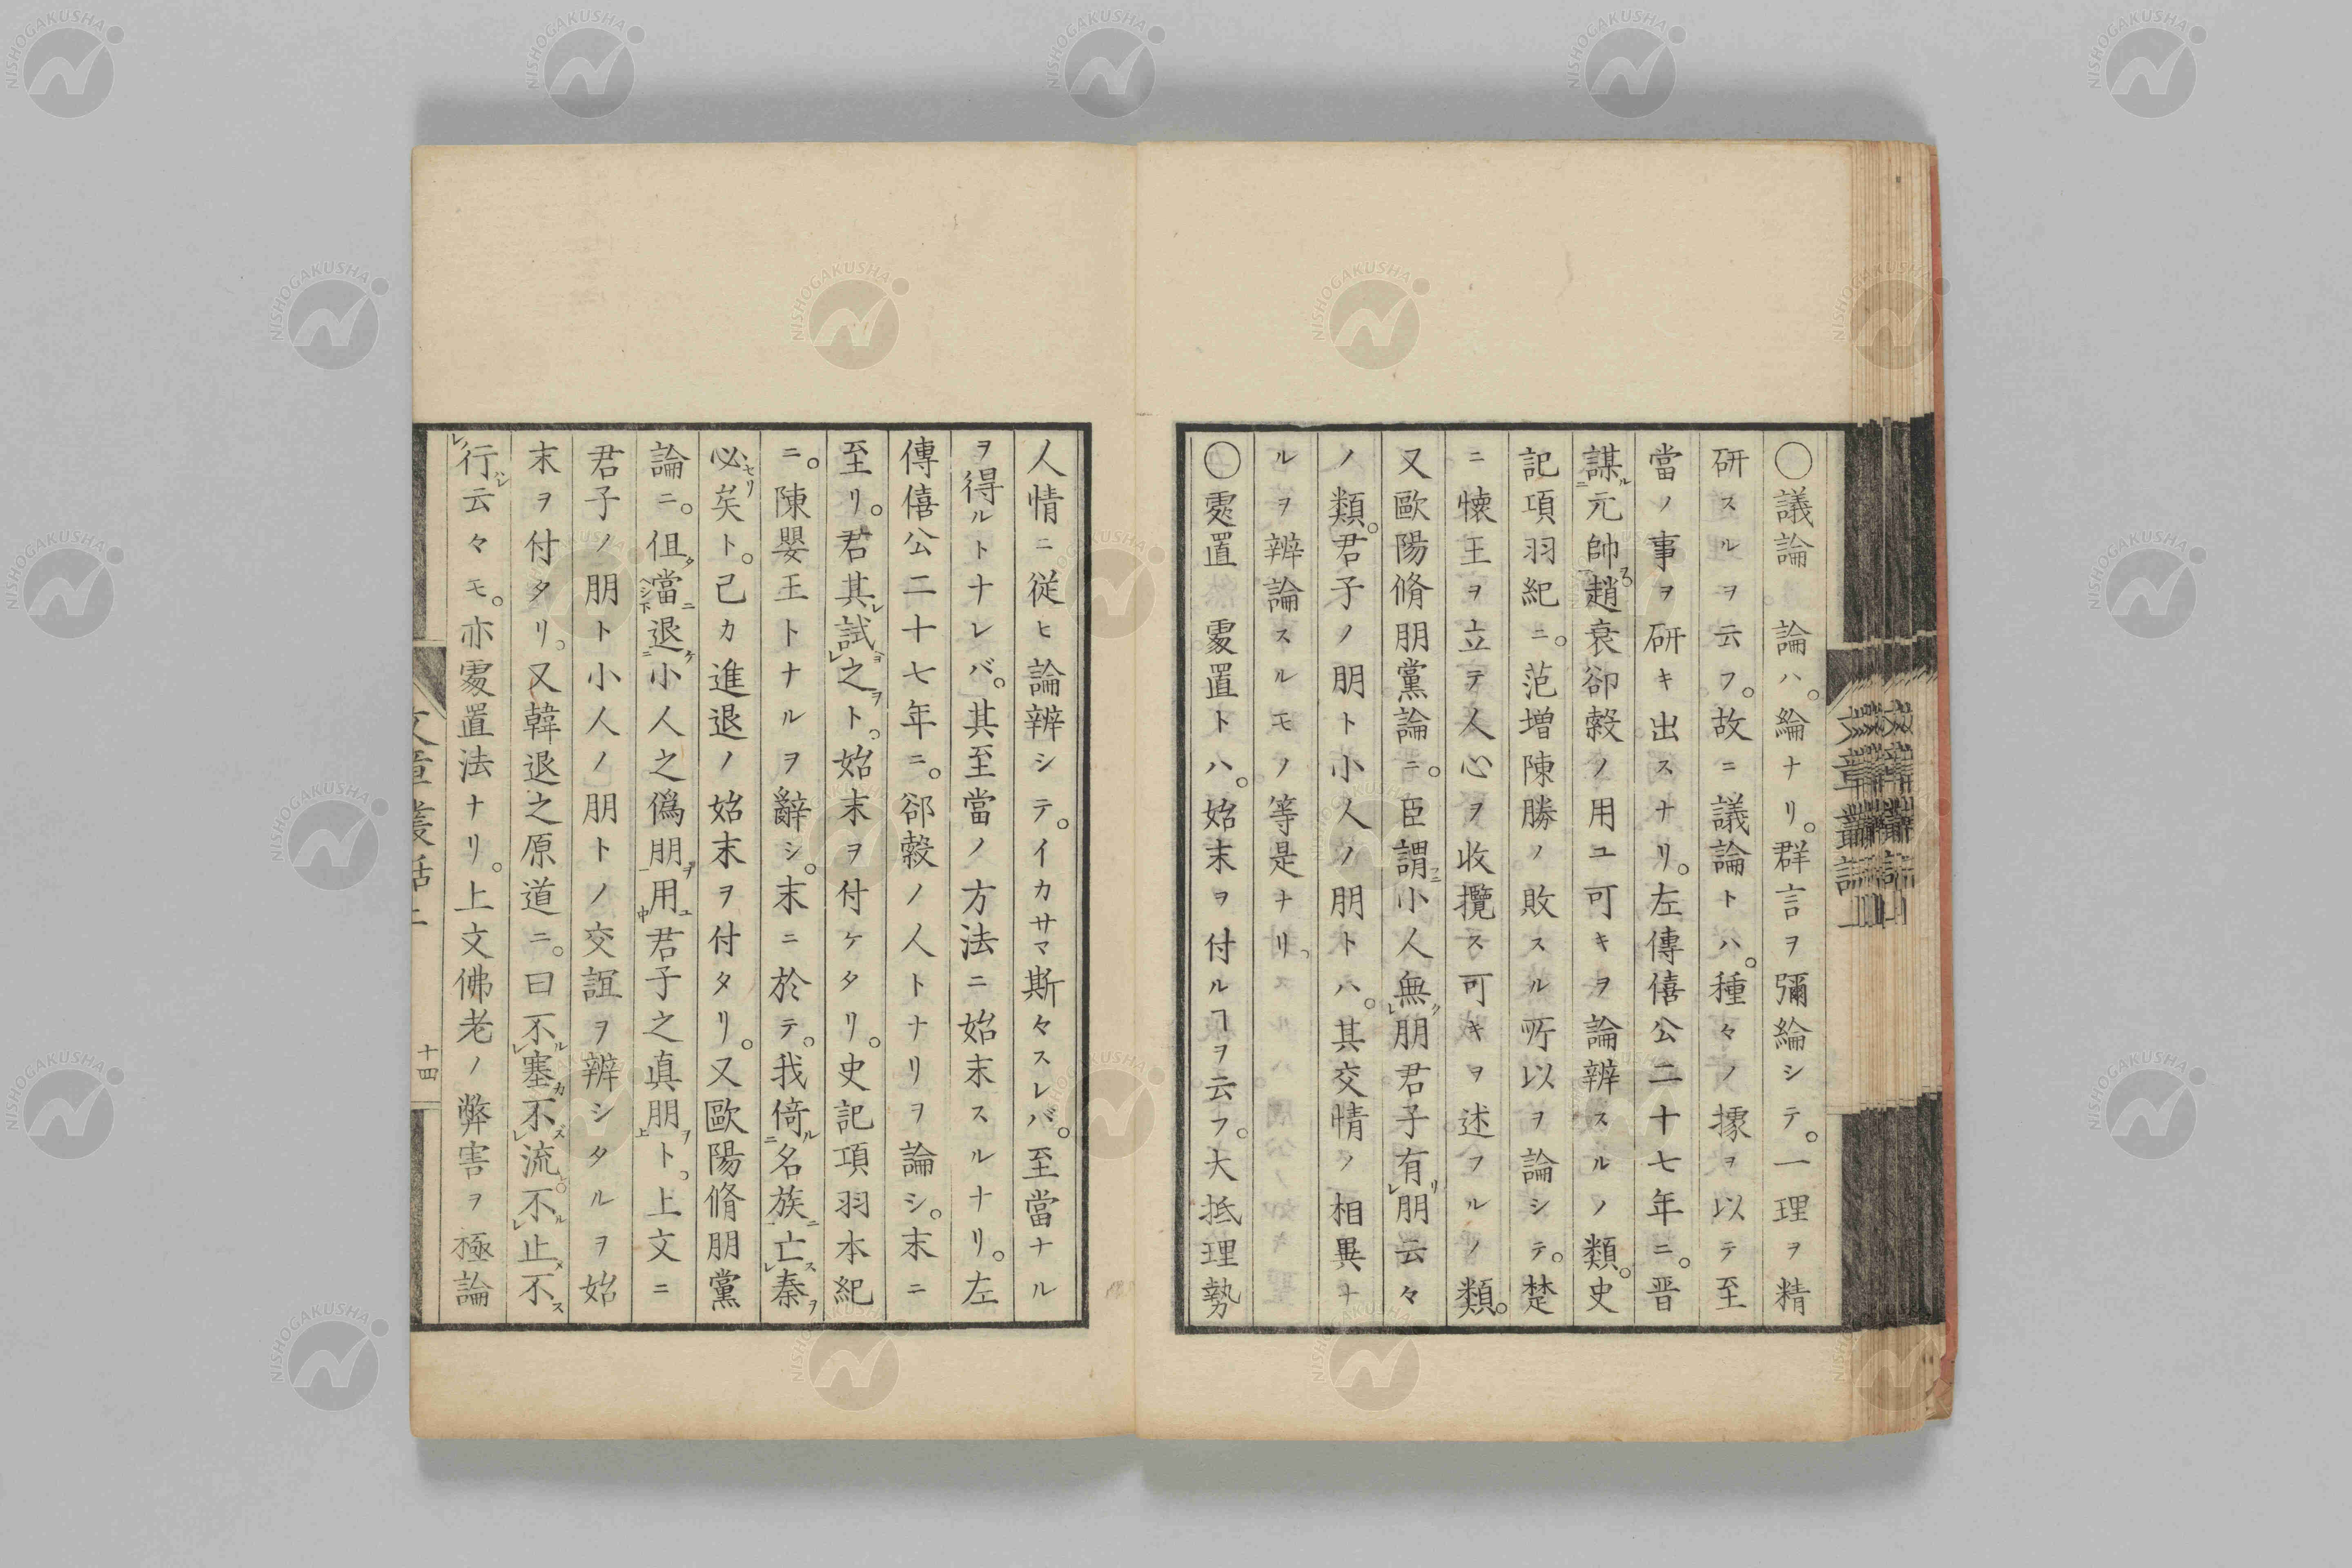 〇議論 論ハ。綸ナリ。群言ヲ彌綸シテ。一理ヲ精
研スルヲ云フ。故ニ議論トハ。種々ノ據ヲ以テ至
當ノ事ヲ研キ出スナリ。左傳僖公二十七年ニ。晋
謀元帥趙衰郤縠ノ用ユ可キヲ論辨スルノ類。史
記項羽紀ニ。范増陳勝ノ敗スル所以ヲ論シテ。楚
ニ懐王ヲ立テ人心ヲ收攬ス可キヲ述フルノ類。
又歐陽脩朋黨論ニ。臣謂小人無朋君子有朋云々
ノ類。君子ノ朋ト小人ノ朋トハ。其交情ノ相異ナ
ルヲ辨論スルモノ等是ナリ。
〇處置 處置トハ。始末ヲ付ルヿヲ云フ。大抵理勢
人情ニ従ヒ論辨シテ。イカサマ斯々スレバ。至當ナル
ヲ得ルトナレバ。其至當ノ方法ニ始末スルナリ。左
傳僖公二十七年ニ。郤縠ノ人トナリヲ論シ。末ニ
至リ。君其試之ト。始末ヲ付ケタリ。史記項羽本紀
ニ。陳嬰王トナルヲ辭シ。末ニ於テ。我倚名族亡秦
必矣ト。己カ進退ノ始末ヲ付タリ。又歐陽脩朋黨
論ニ。但當退小人之僞朋用君子之真朋ト。上文ニ
君子ノ朋ト小人ノ朋トノ交誼ヲ辨シタルヲ始
末ヲ付タリ。又韓退之原道ニ。曰不塞不流。不止不
行云々モ。亦處置法ナリ。上文佛老ノ弊害ヲ極論
文章叢話上
十四
NISHOGAKUSHA